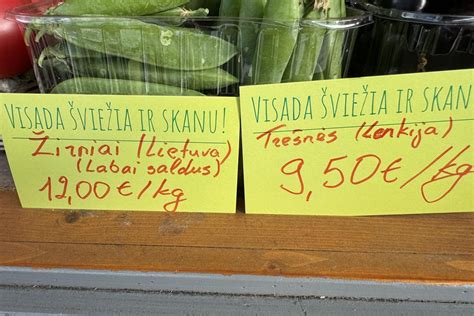 VISADA ŠVIEŽIA IR SKANU!
Žirniai (Lietuva)
(Labai saldus)
12,00 €/kg
VISADA ŠVIEŽIA IR SKAN
Trešnės (Lenkija)
9,50 €/kg